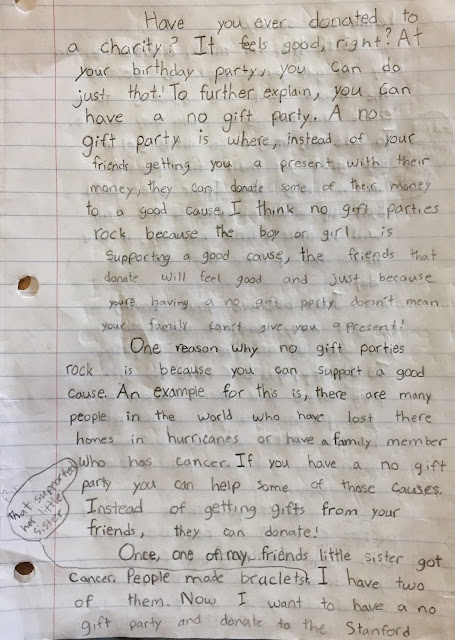 Have you ever donated to
a charity? It feels good, right? At
your birthday party, you can do
just that! To further explain, you can
have a no gift party. A no
gift party is where, instead of your
friends getting you a present with their
money, they can donate some of their money
to a good cause. I think no gift parties
rock because the boy or girl is
supporting a good cause, the friends that
donate will feel good and just because
youre having a no gift party doesn't mean
your family can't give you a present!
One reason why no gift parties
rock is because you can support a good
cause. An example for this is, there are many
people in the world who have lost there
homes in hurricanes or have a family member
who has cancer. If you have a no gift
party you can help some of those causes.
Instead of getting gifts from your
friends, they can donate!
That supported
her little
sister
Once, one of my friends little sister got
cancer. People made braclets. I have two
of them. Now I want to have a no
gift party and donate to the Stanford